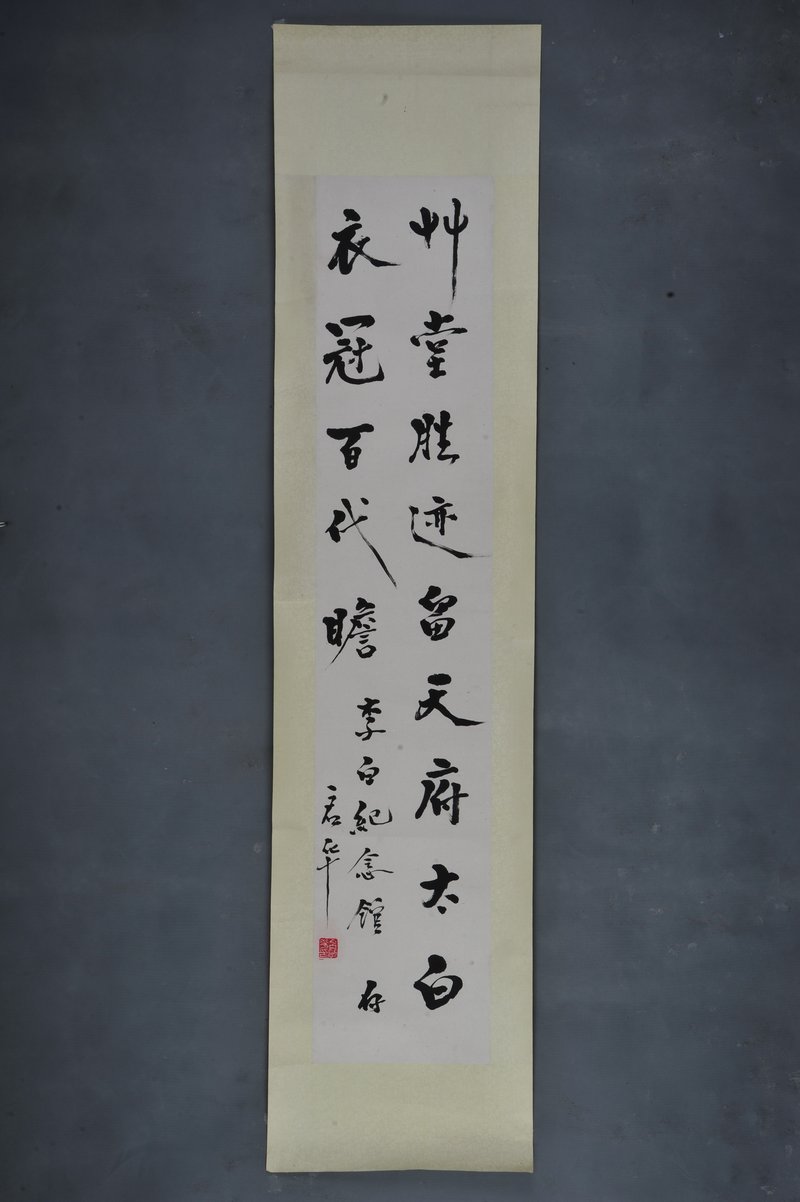 艸堂胜迹留天府太白
衣冠百代瞻
李白纪念馆 存
君华